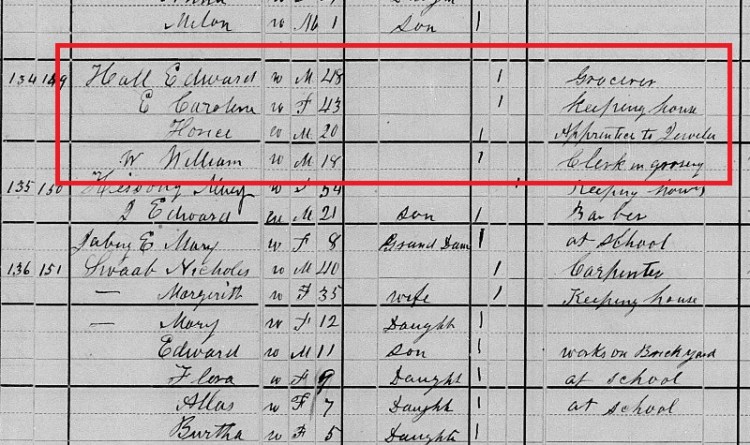 Milon w M 1 Son 1
134 149 Hall Edward w M 48 1 Grocerer
E Caroline w F 43 1 Keeping house
Horice w M 20 1 Apprentice to Jeweler
W William w M 18 1 Clerk in grosery
135 150 Heisong Mary w F 54 1 Keeping house
J Edward w M 21 Son 1 Barber
E Mary w F 8 Grand Daut 1 at School
136 151 Swaab Nicholis w M 40 1 Carpenter
— Margerith w F 35 wife 1 Keeping house
— Mary w F 12 Daught 1
Edward w M 11 Son 1 works on Brickyard
Flora w F 9 Daught 1 at School
w F 7 Daught 1 at School
Burtha w F 5 Daught 1